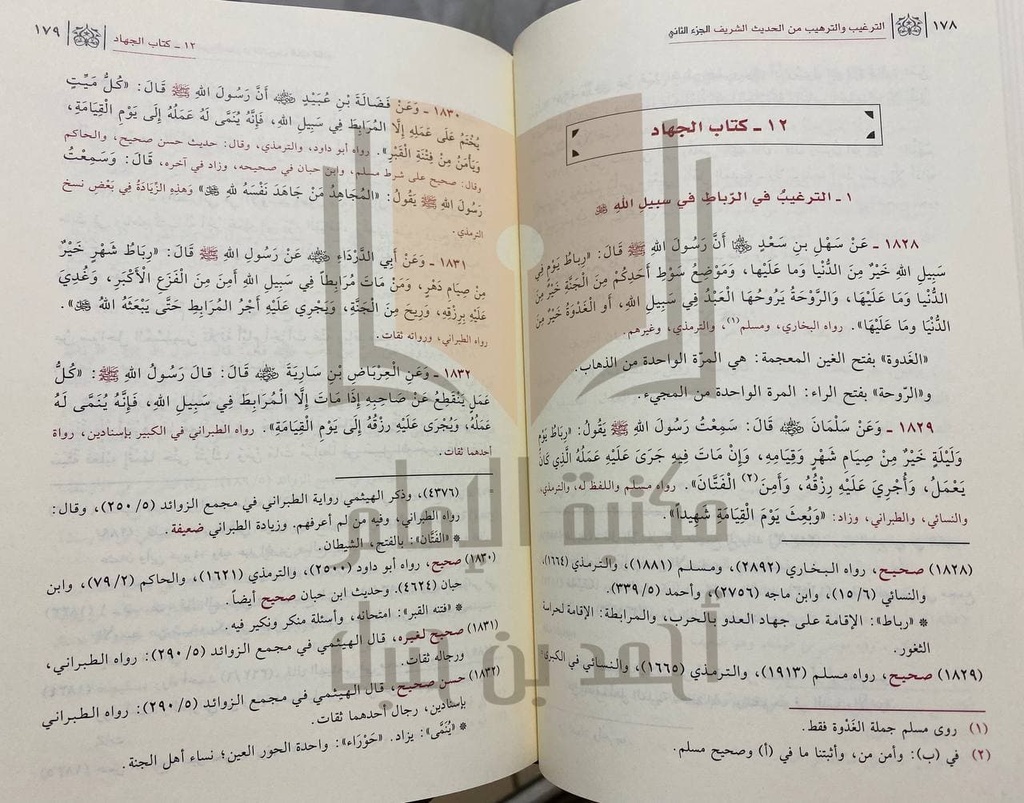 ١٧٨ الترغيب والترهيب من الحديث الشريف الجزء الثاني
١٢ ـ كتاب الجهاد
١ ـ الترغيبُ في الرّباطِ في سبيلِ اللهِ ﷻ
١٨٢٨ ـ عَنْ سَهْلِ بنِ سَعْدٍ ﵄ أَنَّ رَسُولَ اللهِ ﷺ قَالَ: «رِبَاطُ يَوْمٍ فِي
سَبِيلِ اللهِ خَيْرٌ مِنَ الدُّنْيَا وَما عَلَيْها، وَمَوْضِعُ سَوْطِ أَحَدِكُمْ مِنَ الْجَنَّةِ خَيْرٌ مِنَ
الدُّنْيَا وَمَا عَلَيْهَا، وَالرَّوْحَةُ يَرُوحُهَا الْعَبْدُ فِي سَبِيلِ اللهِ، أَو الْغَدْوَةُ خَيْرٌ مِنَ
الدُّنْيَا وَمَا عَلَيْهَا». رواه البخاري، ومسلم (١)، والترمذي، وغيرهم.
«الغَدوة» بفتح الغين المعجمة: هي المرّة الواحدة من الذهاب.
و«الرّوحة» بفتح الراء: المرة الواحدة من المجيء.
١٨٢٩ ـ وَعَنْ سَلْمَانَ ﵁ قَالَ: سَمِعْتُ رَسُولَ اللهِ ﷺ يَقُولُ: «رِبَاطُ يَوْمٍ
وَلَيْلَةٍ خَيْرٌ مِنْ صِيَامِ شَهْرٍ وَقِيَامِهِ، وَإِنْ مَاتَ فِيهِ جَرَى عَلَيْهِ عَمَلُهُ الَّذِي كَانَ
يَعْمَلُ، وَأُجْرِيَ عَلَيْهِ رِزْقُهُ، وَأَمِنَ (٢) الْفَتَّانَ». رواه مسلم واللفظ له، والترمذي،
والنسائي، والطبراني، وزاد: «وَبُعِثَ يَوْمَ الْقِيَامَةِ شَهِيداً».
(١٨٢٨) صحيح، رواه البخاري (٢٨٩٢)، ومسلم (١٨٨١)، والترمذي (١٦٦٤)،
والنسائي (١٥/٦)، وابن ماجه (٢٧٥٦)، وأحمد (٣٣٩/٥).
* «رباط»: الإقامة على جهاد العدو بالحرب، والمرابطة: الإقامة لحراسة
الثغور.
(١٨٢٩) صحيح، رواه مسلم (١٩١٣)، والترمذي (١٦٦٥)، والنسائي في الكبرى
(١) روى مسلم جملة الغَدْوة فقط.
(٢) في (ب): وأمن من، وأثبتنا ما في (أ) وصحيح مسلم.
١٢ ـ كتاب الجهاد ١٧٩
١٨٣٠ ـ وَعَنْ فَضَالَةَ بْنِ عُبَيْدٍ ﵁ أَنَّ رَسُولَ اللهِ ﷺ قَالَ: «كُلُّ مَيِّتٍ
يُخْتَمُ عَلَى عَمَلِهِ إِلَّا الْمُرَابِطَ فِي سَبِيلِ اللهِ، فَإِنَّهُ يُنَمَّى لَهُ عَمَلُهُ إِلَى يَوْمِ الْقِيَامَةِ،
وَيَأْمَنُ مِنْ فِتْنَةِ الْقَبْرِ». رواه أبو داود، والترمذي، وقال: حديث حسن صحيح، والحاكم
وقال: صحيح على شرط مسلم، وابن حبان في صحيحه، وزاد في آخره، قَالَ: وَسَمِعْتُ
رَسُولَ اللهِ ﷺ يَقُولُ: «الْمُجَاهِدُ مَنْ جَاهَدَ نَفْسَهُ لِلهِ ﷻ» وَهٰذِهِ الزِّيَادَةُ فِي بَعْضِ نسخ
الترمذي.
١٨٣١ ـ وَعَنْ أَبِي الدَّرْدَاءِ ﵁ عَنْ رَسُولِ اللهِ ﷺ قَالَ: «رِبَاطُ شَهْرٍ خَيْرٌ
مِنْ صِيَامِ دَهْرٍ، وَمَنْ مَاتَ مُرَابِطاً فِي سَبِيلِ اللهِ أَمِنَ مِنَ الْفَزَعِ الْأَكْبَرِ، وَغُدِيَ
عَلَيْهِ بِرِزْقِهِ، وَرِيحَ مِنَ الْجَنَّةِ، وَيَجْرِي عَلَيْهِ أَجْرُ الْمُرَابِطِ حَتَّى يَبْعَثَهُ اللهُ ﷻ».
رواه الطبراني، ورواته ثقات.
١٨٣٢ ـ وَعَنِ الْعِرْبَاضِ بْنِ سَارِيَةَ ﵁ قَالَ: قَالَ رَسُولُ اللهِ ﷺ: «كُلُّ
عَمَلٍ يَنْقَطِعُ عَنْ صَاحِبِهِ إِذَا مَاتَ إِلَّا الْمُرَابِطَ فِي سَبِيلِ اللهِ، فَإِنَّهُ يُنَمَّى لَهُ
عَمَلُهُ، وَيُجْرَى عَلَيْهِ رِزْقُهُ إِلَى يَوْمِ الْقِيَامَةِ». رواه الطبراني في الكبير بإسنادين، رواة
أحدهما ثقات.
= (٤٣٧٦)، وذكر الهيثمي رواية الطبراني في مجمع الزوائد (٢٥٠/٥)، وقال:
رواه الطبراني، وفيه من لم أعرفهم. وزيادة الطبراني ضعيفة.
* «الفَتَّان»: بالفتح، الشيطان.
(١٨٣٠) صحيح، رواه أبو داود (٢٥٠٠)، والترمذي (١٦٢١)، والحاكم (٧٩/٢)، وابن
حبان (٤٦٢٤). وحديث ابن حبان صحيح أيضاً.
* «فتنه القبر»: امتحانه، وأسئلة منكر ونكير فيه.
(١٨٣١) صحيح لغيره، قال الهيثمي في مجمع الزوائد (٢٩٠/٥): رواه الطبراني،
ورجاله ثقات.
(١٨٣٢) حسن صحيح، قال الهيثمي في مجمع الزوائد (٢٩٠/٥): رواه الطبراني
بإسنادين، رجال أحدهما ثقات.
* «يُنَمَّى»: يزاد. «حَوْرَاء»: واحدة الحور العين؛ نساء أهل الجنة.
مكتبة الإمام
أحمد بن